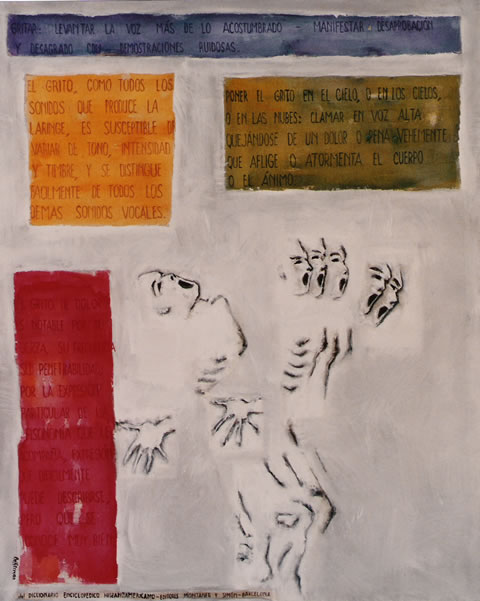 GRITAR: LEVANTAR LA VOZ MÁS DE LO ACOSTUMBRADO - MANIFESTAR DESAPROBACIÓN
Y DESAGRADO CON DEMOSTRACIONES RUIDOSAS.
EL GRITO, COMO TODOS LOS
SONIDOS QUE PRODUCE LA
LARINGE, ES SUSCEPTIBLE DE
VARIAR DE TONO, INTENSIDAD
Y TIMBRE, Y SE DISTINGUE
FACILMENTE DE TODOS LOS
DEMAS SONIDOS VOCALES.
PONER EL GRITO EN EL CIELO, O EN LOS CIELOS,
O EN LAS NUBES: CLAMAR EN VOZ ALTA
QUEJÁNDOSE DE UN DOLOR O PENA VEHEMENTE
QUE AFLIGE O ATORMENTA EL CUERPO
O EL ÁNIMO.
EL GRITO DE DOLOR
ES NOTABLE POR SU
FUERZA, SU FRECUENCIA
SU PENETRABILIDAD
POR LA EXPRESION
PARTICULAR DE LA
FISONOMIA QUE LE
ACOMPAÑA, EXPRESION
QUE DIFICILMENTE
PUEDE DESCRIBIRSE,
PERO QUE SE
CONOCE MUY BIEN
DICCIONARIO ENCICLOPEDICO HISPANOAMERICANO - MONTANER Y SIMÓN - BARCELONA